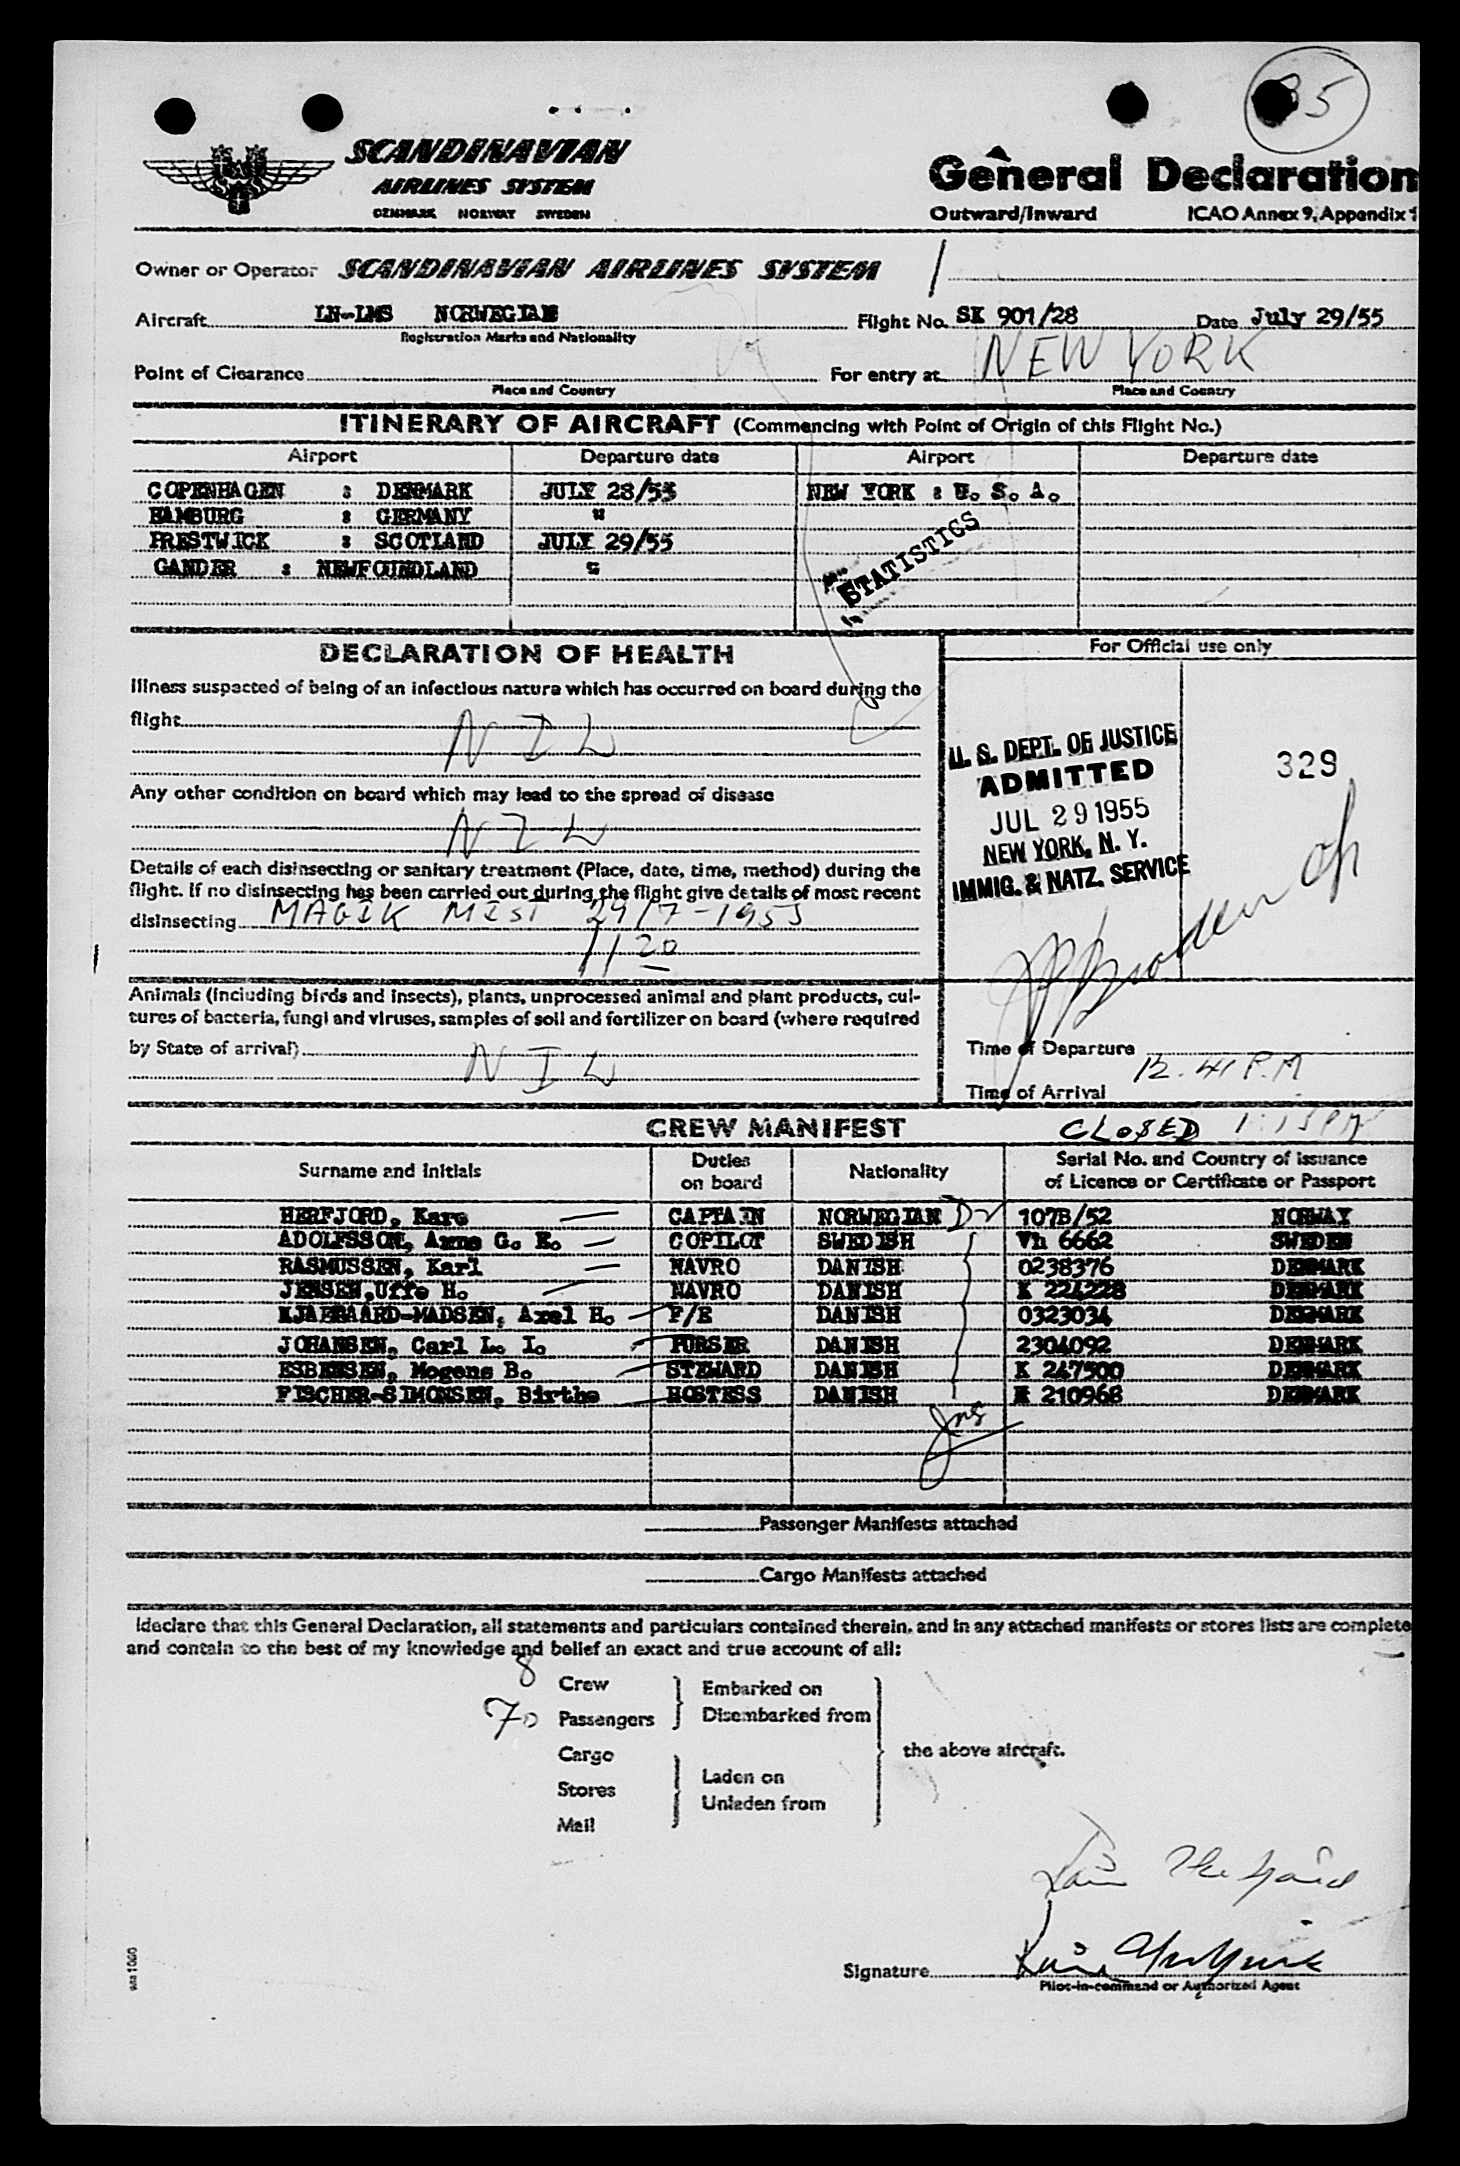 35
SCANDINAVIAN
AIRLINES SYSTEM
DENMARK NORWAY SWEDEN
General Declaration
Outward/Inward ICAO Annex 9, Appendix 1
Owner or Operator SCANDINAVIAN AIRLINES SYSTEM
Aircraft LN-LMS NORWEGIAN Flight No. SK 901/28 Date July 29/55
Registration Marks and Nationality
Point of Clearance For entry at NEW YORK
Place and Country Place and Country
ITINERARY OF AIRCRAFT (Commencing with Point of Origin of this Flight No.)
Airport Departure date Airport Departure date
COPENHAGEN : DENMARK JULY 28/55 NEW YORK : U. S. A.
HAMBURG : GERMANY "
PRESTWICK : SCOTLAND JULY 29/55
GANDER : NEWFOUNDLAND "
STATISTICS
DECLARATION OF HEALTH
For Official use only
Illness suspected of being of an infectious nature which has occurred on board during the
flight NIL
Any other condition on board which may lead to the spread of disease
NIL
Details of each disinsecting or sanitary treatment (Place, date, time, method) during the
flight. If no disinsecting has been carried out during the flight give details of most recent
disinsecting MAGIK MIST 29/7-1955
1120
U. S. DEPT. OF JUSTICE
ADMITTED
JUL 29 1955
NEW YORK, N. Y.
IMMIG. & NATZ. SERVICE
329
Animals (including birds and insects), plants, unprocessed animal and plant products, cul-
tures of bacteria, fungi and viruses, samples of soil and fertilizer on board (where required
by State of arrival) NIL
Time of Departure
12.41 P.M
Time of Arrival
CREW MANIFEST
CLOSED 1:15 PM
Surname and Initials Duties on board Nationality Serial No. and Country of issuance of Licence or Certificate or Passport
HERFJORD, Kare CAPTAIN NORWEGIAN 107B/52 NORWAY
ADOLFSSON, Arne G. E. COPILOT SWEDISH Vh 6662 SWEDEN
RASMUSSEN, Karl NAVRO DANISH 0238376 DENMARK
JENSEN, Uffe H. NAVRO DANISH K 224228 DENMARK
KJAERGAARD-MADSEN, Axel H. F/E DANISH 0323034 DENMARK
JOHANSEN, Carl L. I. PURSER DANISH 2304092 DENMARK
ESBENSEN, Mogens B. STEWARD DANISH K 247500 DENMARK
FISCHER-SIMONSEN, Birthe HOSTESS DANISH K 210968 DENMARK
Passenger Manifests attached
Cargo Manifests attached
I declare that this General Declaration, all statements and particulars contained therein, and in any attached manifests or stores lists are complete
and contain to the best of my knowledge and belief an exact and true account of all:
8 Crew Embarked on
70 Passengers Disembarked from
Cargo the above aircraft.
Stores Laden on
Unladen from
Mail
Signature
Pilot-in-command or Authorized Agent